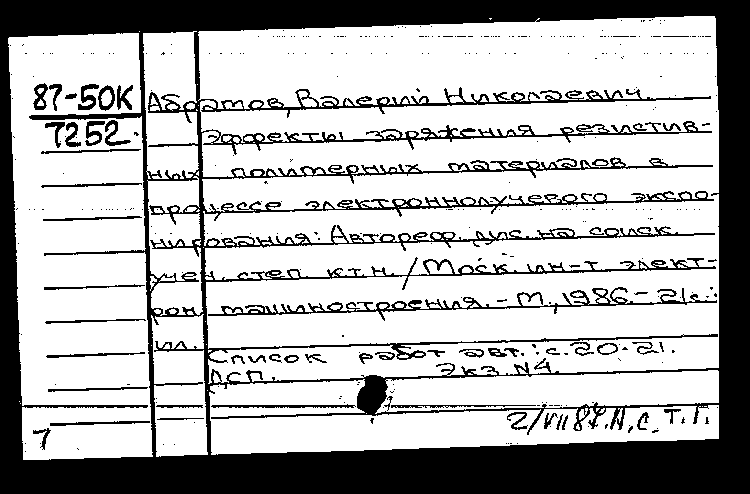 87-50К
7252.
Абратов, Валерий Николаевич.
Эффекты заряжения резистив-
ных полимерных материалов в
процессе электроннолучевого экспо-
нирования: Автореф. дис. на соиск.
учен. степ. к.т.н. / Моск. ин-т элект-
рон. машиностроения. - М., 1986. - 21с.:
ил.
Список работ авт.: с. 20-21.
ДСП. Экз. N4.
2/VII 87. Н. С. Т. Г.
7